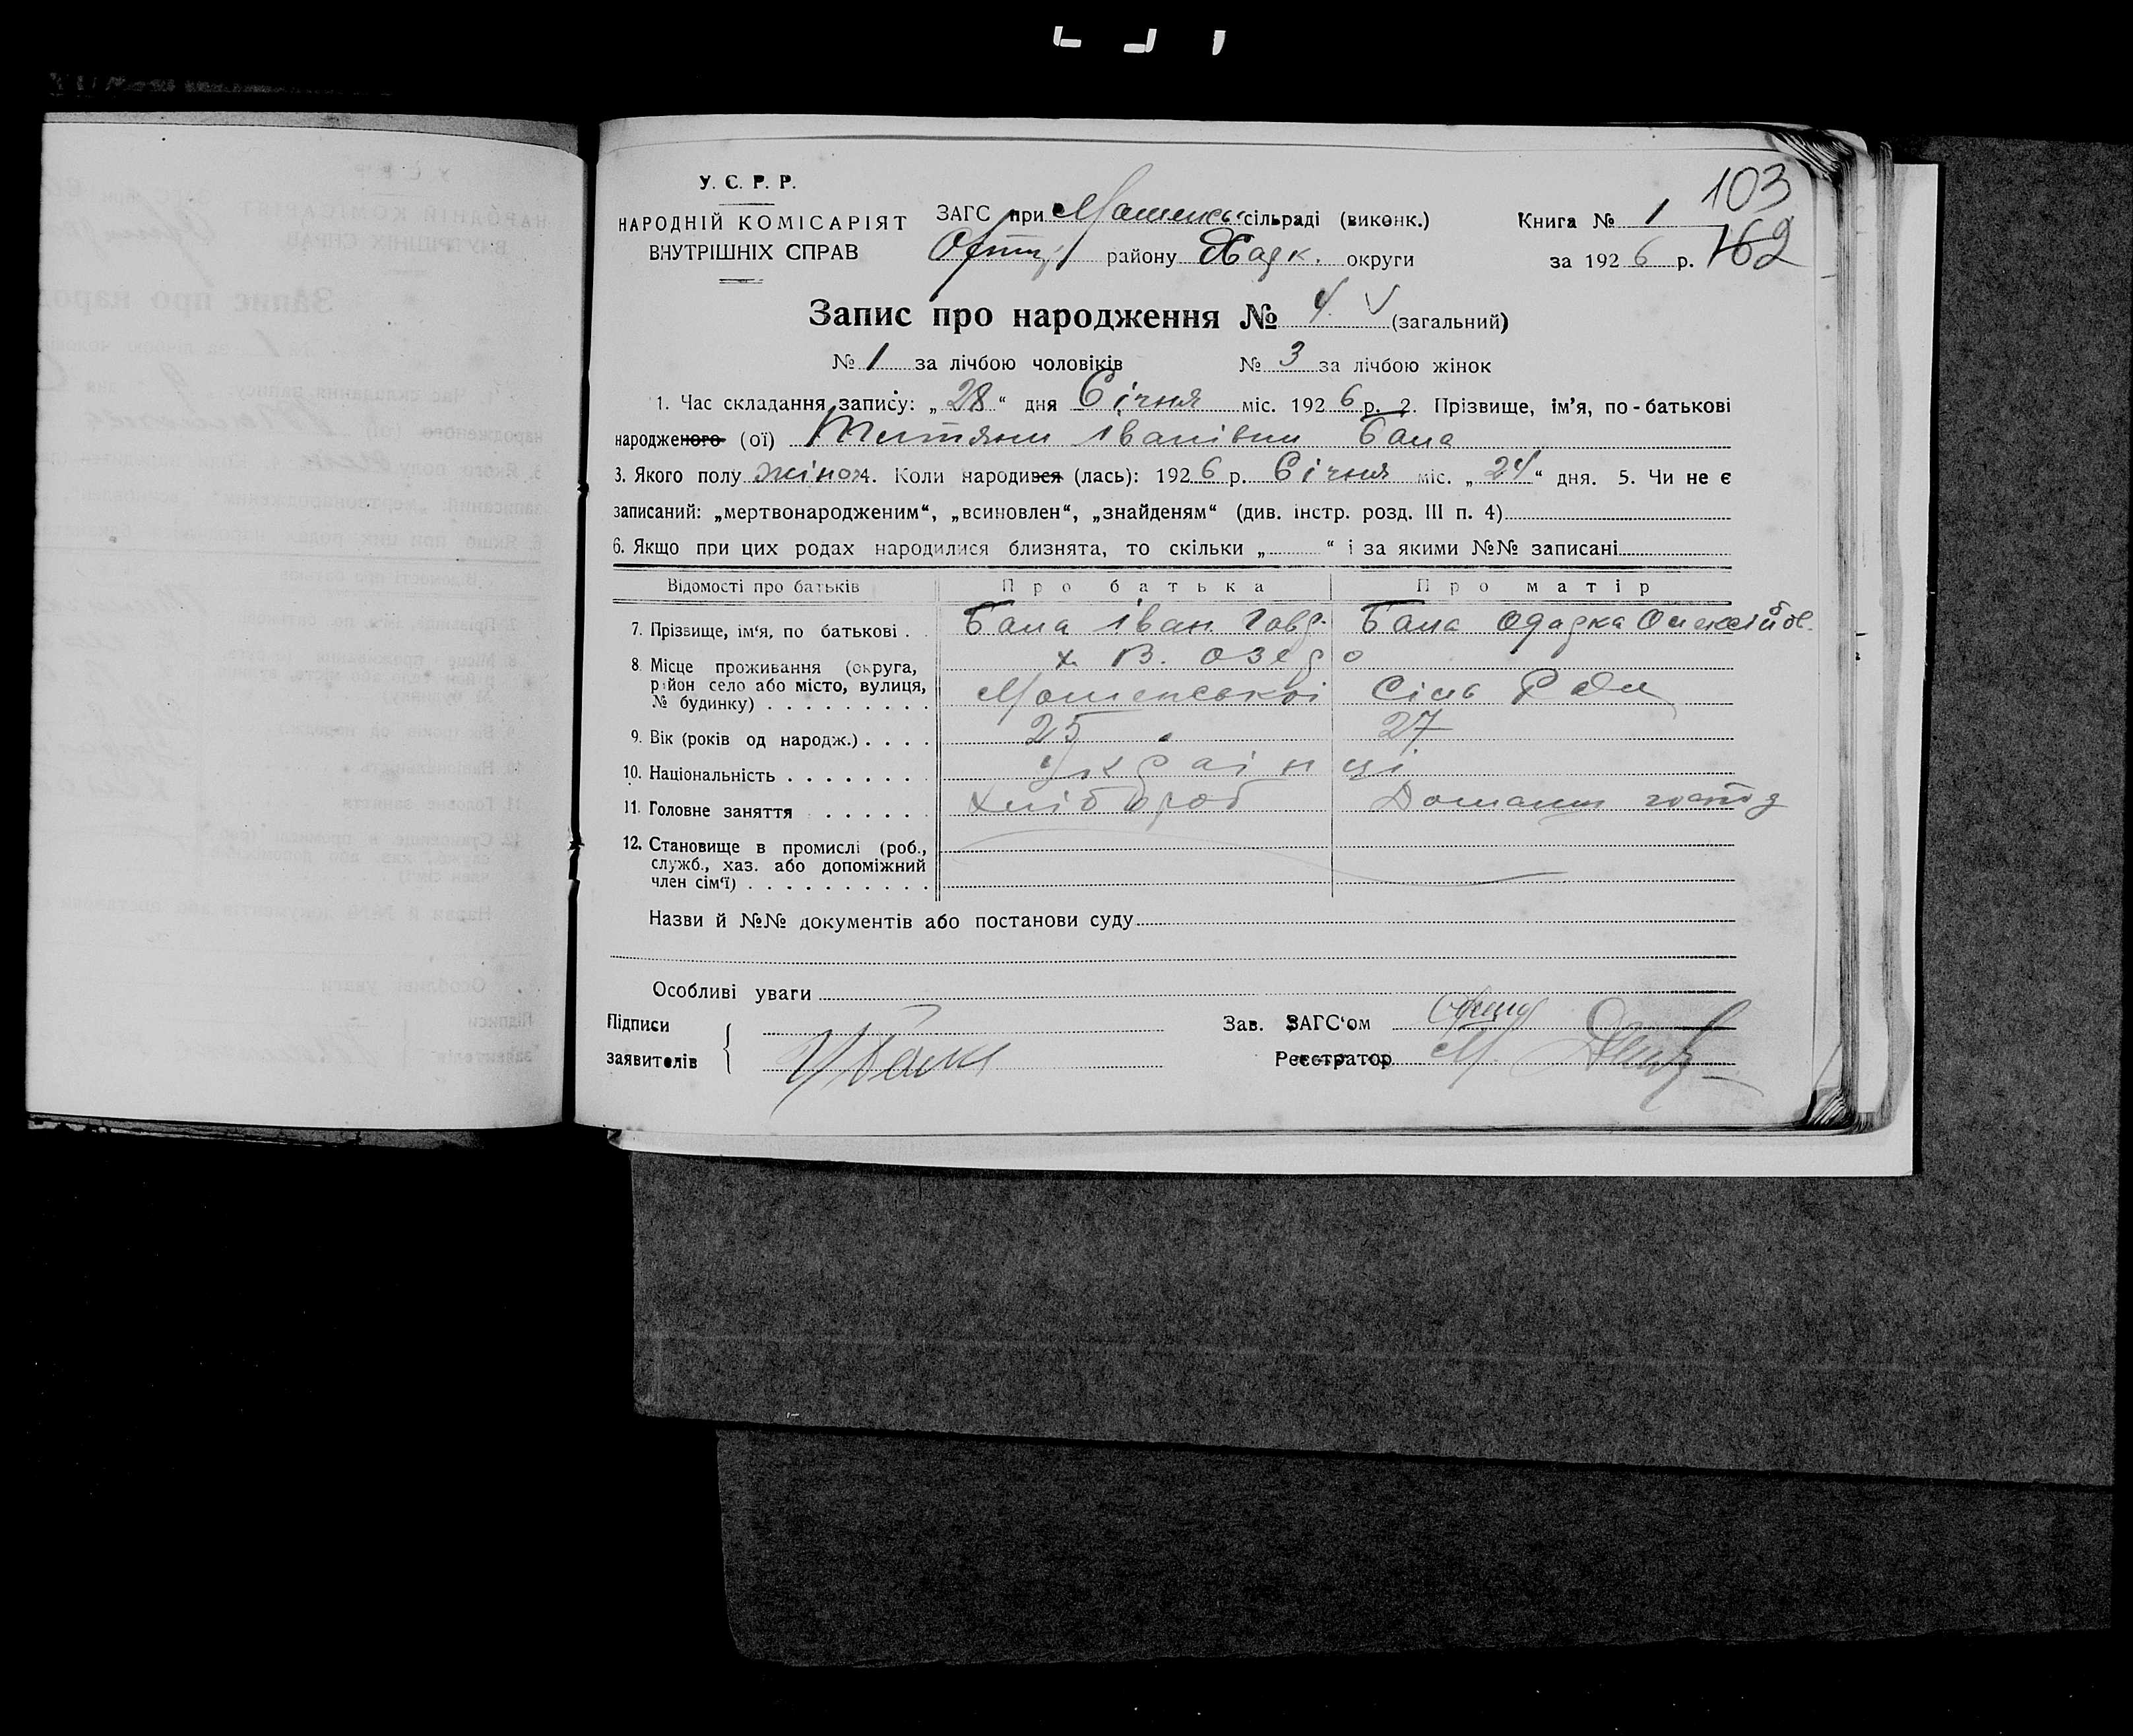 У. С. Р. Р.
НАРОДНІЙ КОМІСАРІЯТ
ВНУТРІШНІХ СПРАВ
ЗАГС при сільраді (виконк.)
району Харк. округи
Книга № 1
за 1926 р.
103
162
Запис про народження № 4 (загальний)
№ 1 за лічбою чоловіків № 3 за лічбою жінок
1. Час складання запису: „28“ дня Січня міс. 1926 р. 2. Прізвище, ім'я, по-батькові
народженого (ої) Титяни Іванівни Бала
3. Якого полу жіноч 4. Коли народився (лась): 1926 р. Січня міс. „24“ дня. 5. Чи не є
записаний: „мертвонародженим“, „всиновлен“, „знайденям“ (див. інстр. розд. III п. 4)
6. Якщо при цих родах народилися близнята, то скільки „ “ і за якими №№ записані
Відомості про батьків Про батька Про матір
7. Прізвище, ім'я, по батькові . Бала Іван Гавр. Бала Одарка Олексійов.
8. Місце проживання (округа, х. В. Озеро
район село або місто, вулиця,
№ будинку) . . . . . . . . . Сіль Ради
9. Вік (років од народж.) . . . . 25 27
10. Національність . . . . . . . Українці
11. Головне заняття . . . . . . Хлібороб Домашн господ
12. Становище в промислі (роб.,
служб., хаз. або допоміжний
член сім'ї) . . . . . . . . . .
Назви й №№ документів або постанови суду
Особливі уваги
Підписи
заявителів
І Бала
Зав. ЗАГС'ом
Реєстратор